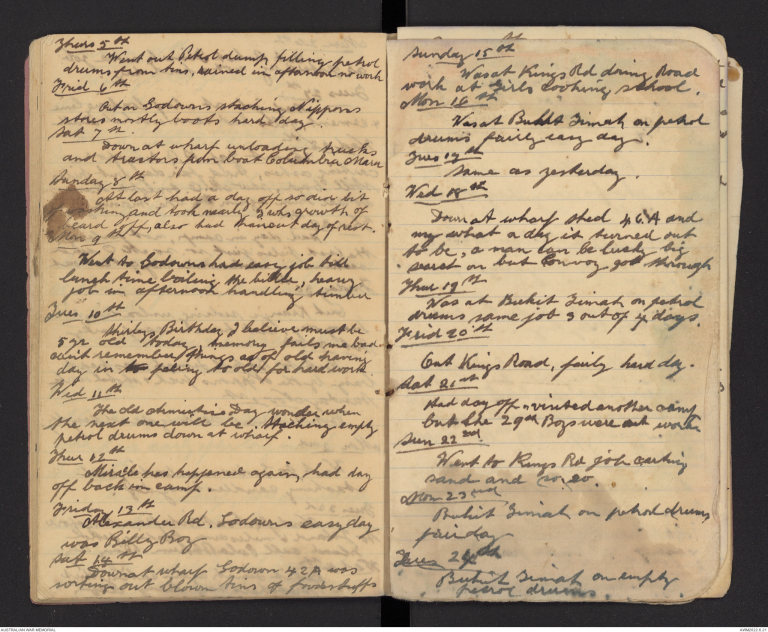 Thurs 5th
Went out Petrol dump, filling petrol
drums from tins, rained in afternoon no work
Frid 6th
Out at Godowns stacking Nippons
stores mostly boots hard day.
Sat 7th.
Down at wharf unloading trucks
and tractors from boat Columbia Maru
Sunday 8th
At last had a day off so did bit
of washing and took nearly 3 wks growth of
beard off, also had haircut day of rest.
Mon 9th
Went to Godowns had easy job till
lunch time boiling the billie, heavy
job in afternoon handling timber
Tues 10th
Shirleys Birthday I believe must be
5 yr old today, memory fails me bad
can't remember things as of old having
day in feeling to old for hard work
Wed 11th
The old Christening Day wonder when
the next one will be. Stacking empty
petrol drums down at wharf.
Thur 12th
Miracle has happened again, had day
off back in camp.
Friday 13th
Alexander Rd, Godowns easy day
was Billy Boy
Sat 14th
Down at wharf Godown 42A was
sorting out blown tins of foodstuffs
Sunday 15th
Was at Kings Rd doing Road
work at Girls Cooking school.
Mon 16th
Was at Bukit Timah on petrol
drums fairly easy day.
Tues 17th
Same as yesterday.
Wed 18th
Down at wharf shed 46A and
my what a day it turned out
to be, a man can be lucky big
search on but Convoy got through
Thur 19th
Was at Bukit Timah on petrol
drums same job 3 out of 4 days.
Frid 20th
Out Kings Road, fairly hard day.
Sat 21st
Had day off & visited another camp
but the 29th Boys were out workin
Sun 22nd
Went to Kings Rd job carting
sand and so so.
Mon 23rd
Bukit Timah on petrol drums
fair day
Tues 24th
Bukit Timah on empty
petrol drums.
AUSTRALIAN WAR MEMORIAL
AWM2022.6.21